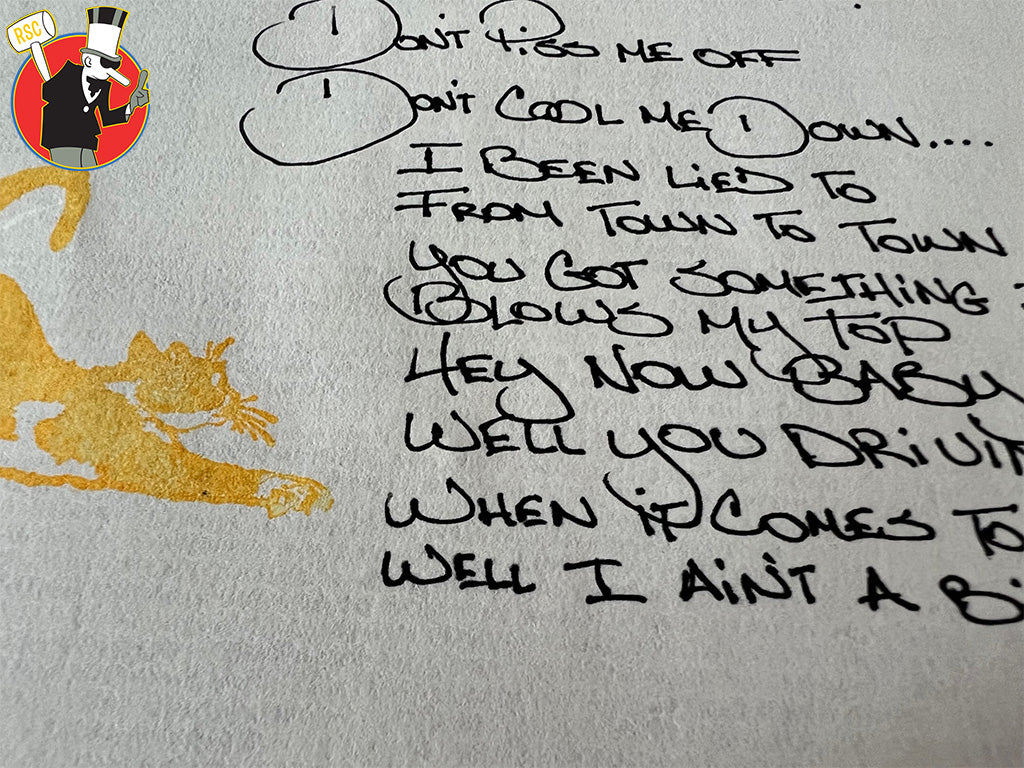 RSC
DON'T PISS ME OFF
DON'T COOL ME DOWN....
I BEEN LIED TO
FROM TOWN TO TOWN
YOU GOT SOMETHING
BLOWS MY TOP
HEY NOW BABY
WELL YOU DRIVIN
WHEN IT COMES TO
WELL I AIN'T A